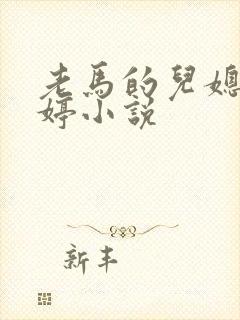 老馬的兒媳
婷小說
新丰